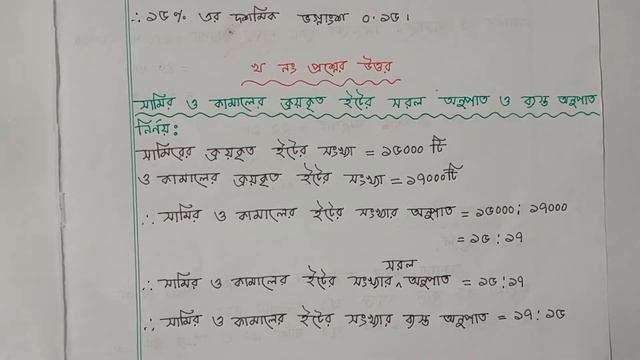 ∴ ১৫% এর দশমিক ভগ্নাংশ ০.১৫।
খ নং প্রশ্নের উত্তর
সামির ও কামালের ক্রয়কৃত ইটের সরল অনুপাত ও ব্যস্ত অনুপাত
নির্ণয়:
সামিরের ক্রয়কৃত ইটের সংখ্যা = ১৫০০০ টি
ও কামালের ক্রয়কৃত ইটের সংখ্যা = ১৭০০০ টি
∴ সামির ও কামালের ইটের সংখ্যার অনুপাত = ১৫০০০ : ১৭০০০
= ১৫ : ১৭
∴ সামির ও কামালের ইটের সংখ্যার সরল অনুপাত = ১৫ : ১৭
∴ সামির ও কামালের ইটের সংখ্যার ব্যস্ত অনুপাত = ১৭ : ১৫